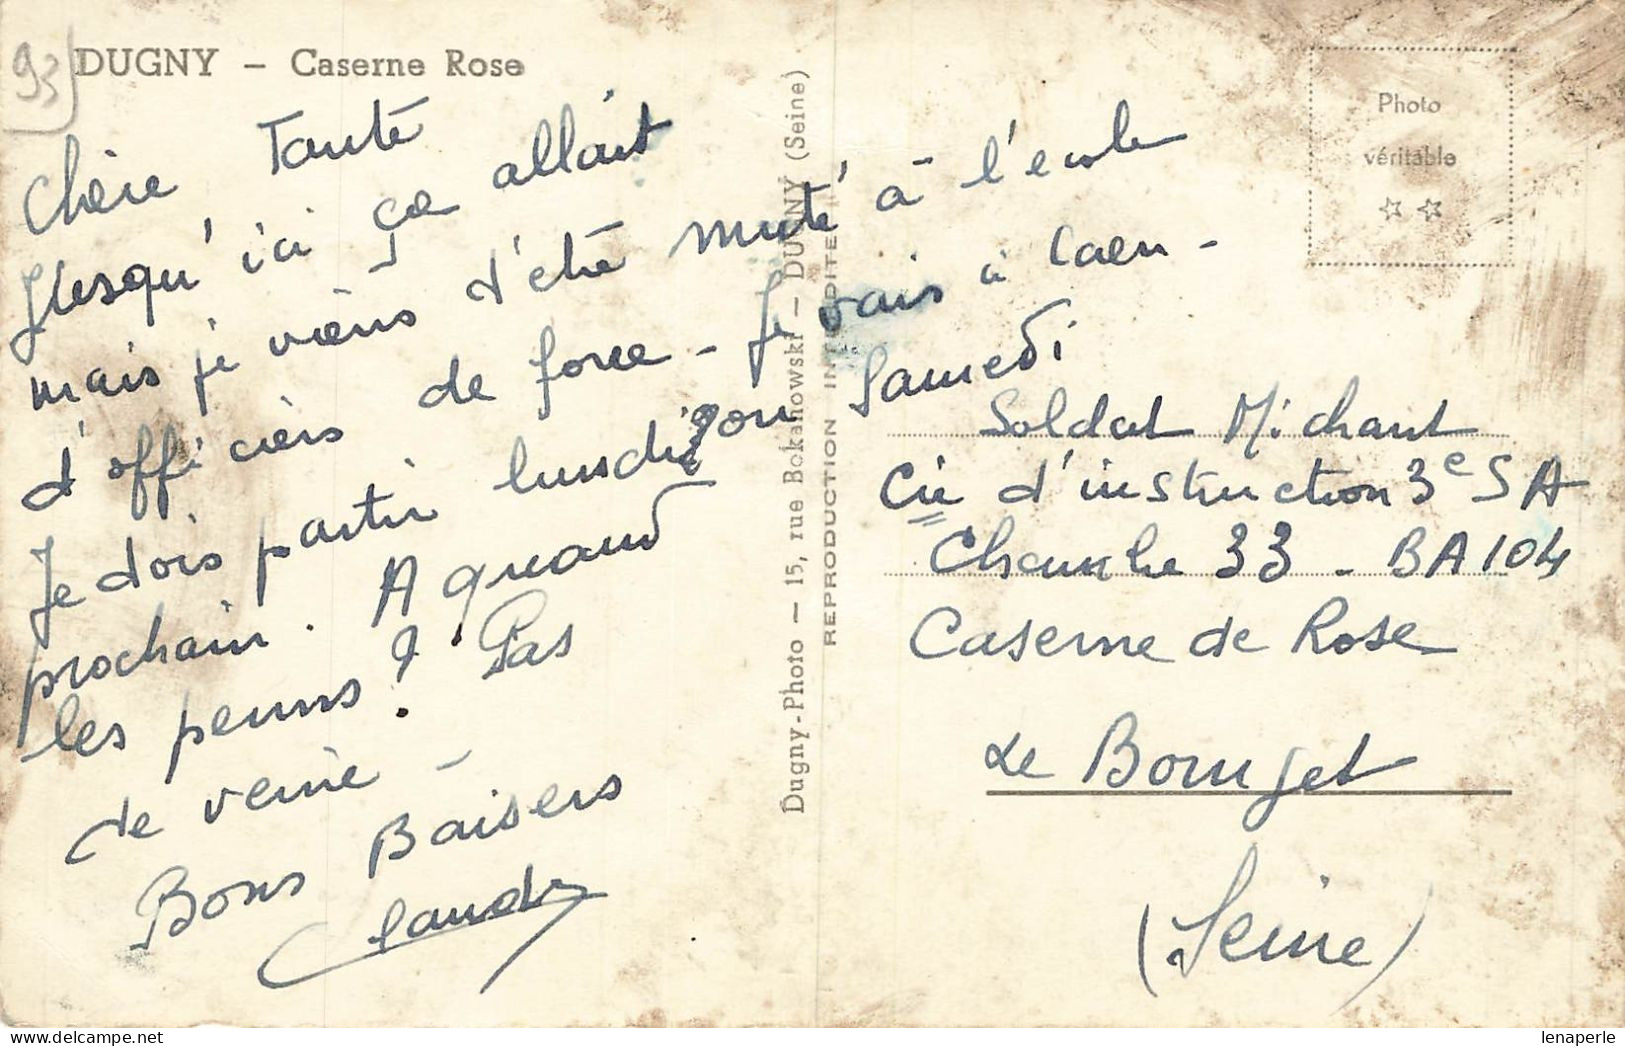 93
DUGNY – Caserne Rose
Chère Tante
Jusqu'ici ça allait
mais je viens d'être muté à l'école
d'officiers de force – Je vais à Caen –
Je dois partir lundi ou Samedi
prochain. A quand
les perms ? Pas
de veine –
Bons Baisers
Claude
Dugny-Photo — 15, rue Bokanowski — DUGNY (Seine)
REPRODUCTION INTERDITE
Photo
véritable
☆ ☆
Soldat Michant
Cie d'instruction 3e S A
Chambre 33 - BA 104
Caserne de Rose
Le Bourget
(Seine)
lenaperle